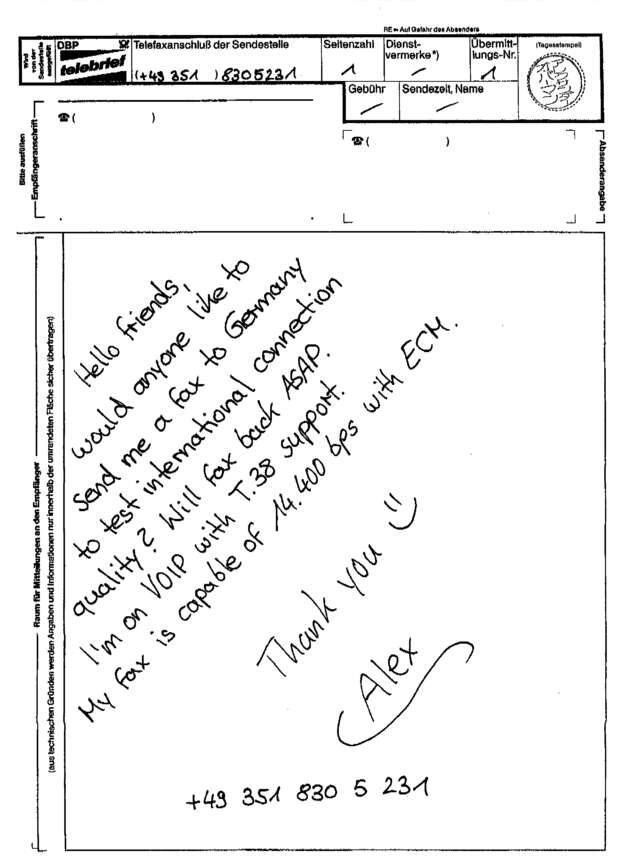 RE = Auf Gefahr des Absenders
Wird von der Sendestelle ausgefüllt
DBP
telebrief
Telefaxanschluß der Sendestelle
(+49 351 ) 8305231
Seitenzahl
1
Dienst-
vermerke*)
/
Übermitt-
lungs-Nr.
1
(Tagesstempel)
Gebühr
/
Sendezeit, Name
/
Bitte ausfüllen
Empfängeranschrift
☎ ( )
☎ ( )
Absenderangabe
Raum für Mitteilungen an den Empfänger
(aus technischen Gründen werden Angaben und Informationen nur innerhalb der umrandeten Fläche sicher übertragen)
Hello friends,
would anyone like to
send me a fax to Germany
to test international connection
quality? Will fax back ASAP.
I'm on VOIP with T.38 support.
My fax is capable of 14.400 bps with ECM.
Thank you :)
Alex
+49 351 830 5 231